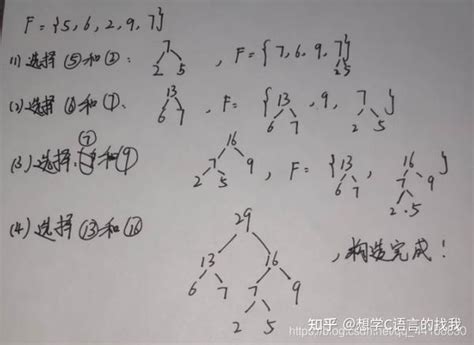 F={5,6,2,9,7}
(1)选择⑤和②: 7 2 5 , F={7,6,9,7} 2 5
(2)选择⑥和⑦、 13 6 7 F={13,9,7} 6 7 2 5
(3)选择⑦和⑨ 16 7 9 2 5 , F={13, 16} 6 7 7 9 2.5
(4)选择⑬和⑯ 29
13 16
6 7 7 9
2 5
,构造完成!
知乎 @想学C语言的找我
https://blog.csdn.net/qq_44166630